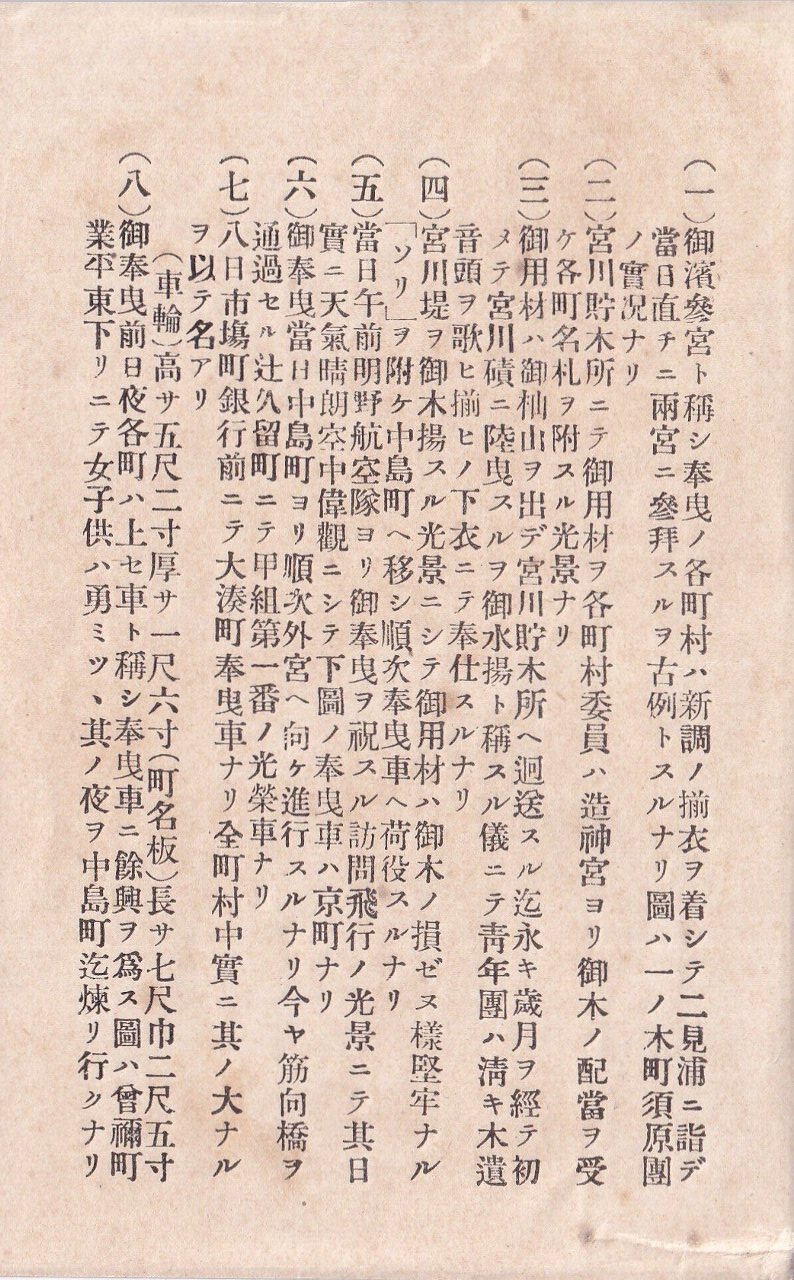 (一)御濱參宮ト稱シ奉曳ノ各町村ハ新調ノ揃衣ヲ着シテ二見浦ニ詣デ
當日直チニ兩宮ニ參拜スルヲ古例トスルナリ圖ハ一ノ木町須原團
ノ實况ナリ
(二)宮川貯木所ニテ御用材ヲ各町村委員ハ造神宮ヨリ御木ノ配當ヲ受
ケ各町名札ヲ附スル光景ナリ
(三)御用材ハ御杣山ヲ出デ宮川貯木所ヘ迴送スル迄永キ歲月ヲ經テ初
メテ宮川磧ニ陸曳スルヲ御水揚ト稱スル儀ニテ靑年團ハ淸キ木遣
音頭ヲ歌ヒ揃ヒノ下衣ニテ奉仕スルナリ
(四)宮川堤ヲ御木揚スル光景ニシテ御用材ハ御木ノ損ゼヌ樣堅牢ナル
「ソリ」ヲ附ケ中島町ヘ移シ順次奉曳車ヘ荷役スルナリ
(五)當日午前明野航空隊ヨリ御奉曳ヲ祝スル訪問飛行ノ光景ニテ其日
實ニ天氣晴朗空中偉觀ニシテ下圖ノ奉曳車ハ京町ナリ
(六)御奉曳當日中島町ヨリ順次外宮ヘ向ケ進行スルナリ今ヤ筋向橋ヲ
通過セル辻久留町ニテ甲組第一番ノ光榮車ナリ
(七)八日市塲町銀行前ニテ大湊町奉曳車ナリ全町村中實ニ其ノ大ナル
ヲ以テ名アリ
(車輪)高サ五尺二寸厚サ一尺六寸(町名板)長サ七尺巾二尺五寸
(八)御奉曳前日夜各町ハ上セ車ト稱シ奉曳車ニ餘興ヲ爲ス圖ハ曾禰町
業平東下リニテ女子供ハ勇ミツヽ其ノ夜ヲ中島町迄煉リ行クナリ